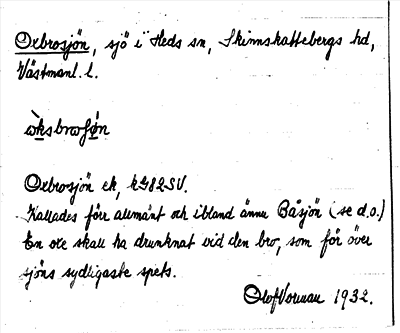 Oxbrosjön, sjö i Heds sn, Skinnskattebergs hd,
Västmanl. l.
Oxbrosjön ek, k G82SV.
Kallades förr allmänt och ibland ännu Båsjön (se d.o.)
En oxe skall ha drunknat vid den bro, som för över
sjöns sydligaste spets.
1932.